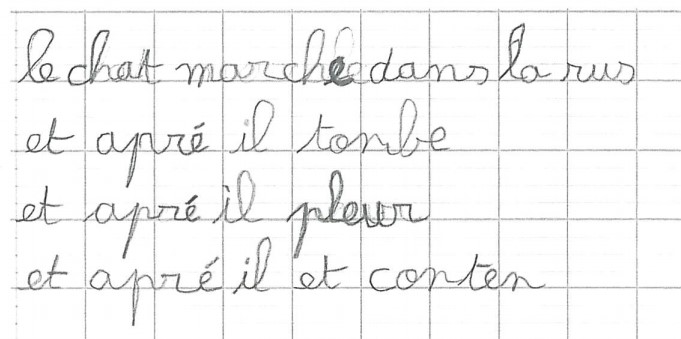 le chat marche dans la rus
et apré il tombe
et apré il pleur
et apré il et conten